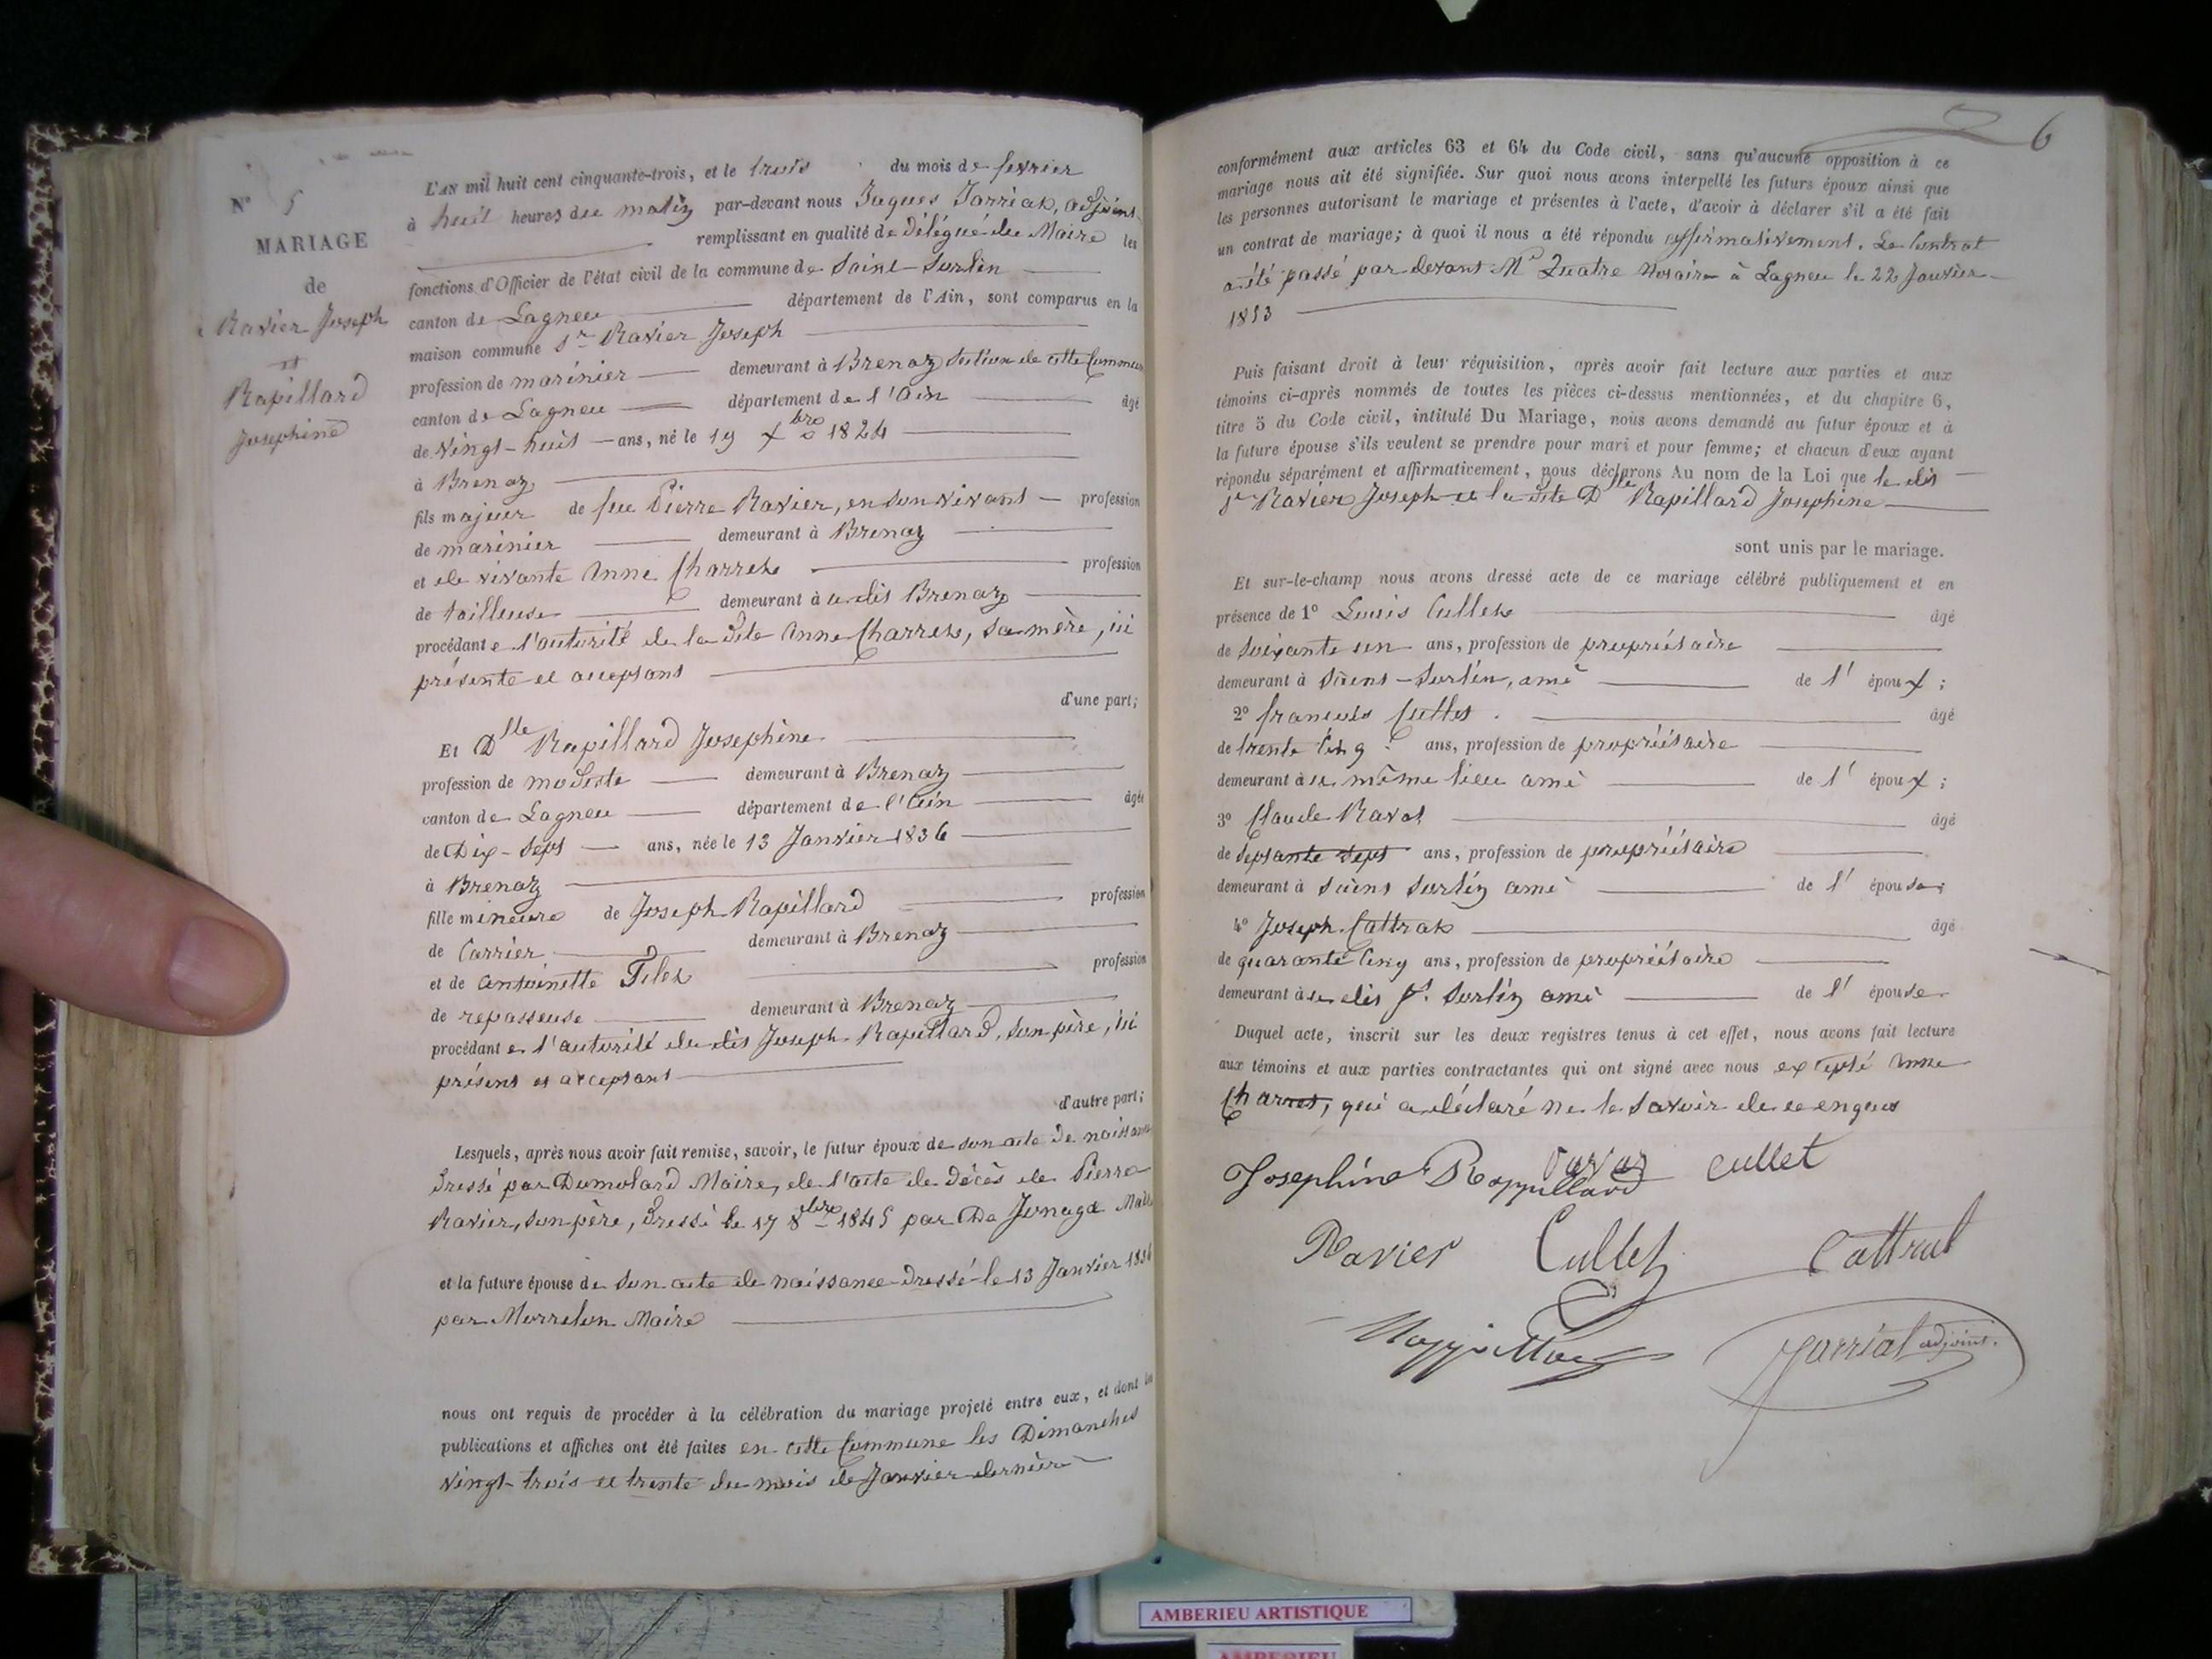 N° 5
MARIAGE
de
Ravier Joseph
et
Rapillard
Josephine
L'AN mil huit cent cinquante-trois, et le trois du mois de fevrier
à huit heures du matin par-devant nous Jaques Jarriat, adjoint
remplissant en qualité de Délégué du Maire les
fonctions d'Officier de l'état civil de la commune de Saint-Sorlin
canton de Lagneu département de l'Ain, sont comparus en la
maison commune Sr Ravier Joseph
profession de marinier demeurant à Brenaz Section de cette Commune
canton de Lagneu département de l'Ain âgé
de Vingt-huit ans, né le 19 Xbre 1824
à Brenaz
fils majeur de feu Pierre Ravier, en son vivant profession
de marinier demeurant à Brenaz
et de vivante Anne Charret profession
de tailleuse demeurant à u dit Brenaz
procédant e l'autorité de la dite Anne Charret, sa mère, ici
présente et acceptant
d'une part;
Et Dlle Rapillard Josephine
profession de modiste demeurant à Brenaz
canton de Lagneu département de l'Ain âgée
de Dix-sept ans, née le 13 Janvier 1836
à Brenaz
fille mineure de Joseph Rapillard profession
de Carrier demeurant à Brenaz
et de Antoinette profession
de repasseuse demeurant à Brenaz
procédant e l'autorité du dit Joseph Rapillard, son père, ici
présent et acceptant
d'autre part;
Lesquels, après nous avoir fait remise, savoir, le futur époux de son acte de naissance
Dressé par Dumolard Maire, de l'acte de décès de Pierre
Ravier, son père, Dressé le 17 8bre 1845 par De Jonage Maire
et la future épouse de son acte de naissance dressé le 13 Janvier 1836
par Morrelon Maire
nous ont requis de procéder à la célébration du mariage projeté entre eux, et dont les
publications et affiches ont été faites en cette Commune les Dimanches
Vingt-trois et trente du mois de Janvier dernier
6
conformément aux articles 63 et 64 du Code civil, sans qu'aucune opposition à ce
mariage nous ait été signifiée. Sur quoi nous avons interpellé les futurs époux ainsi que
les personnes autorisant le mariage et présentes à l'acte, d'avoir à déclarer s'il a été fait
un contrat de mariage; à quoi il nous a été répondu affirmativement. Le Contrat
a été passé par devant Me Quatre Notaire à Lagneu le 22 Janvier
1853
Puis faisant droit à leur réquisition, après avoir fait lecture aux parties et aux
témoins ci-après nommés de toutes les pièces ci-dessus mentionnées, et du chapitre 6,
titre 5 du Code civil, intitulé Du Mariage, nous avons demandé au futur époux et à
la future épouse s'ils veulent se prendre pour mari et pour femme; et chacun d'eux ayant
répondu séparément et affirmativement, nous déclarons Au nom de la Loi que le dit
Sr Ravier Joseph et la dite Dlle Rapillard Josephine
sont unis par le mariage.
Et sur-le-champ nous avons dressé acte de ce mariage célébré publiquement et en
présence de 1° Louis Cullet âgé
de soixante un ans, profession de propriétaire
demeurant à Saint-Sorlin, ami de l' époux;
2° francois Cullet âgé
de trente cinq ans, profession de propriétaire
demeurant à u même lieu ami de l' époux;
3° Claude Ravat âgé
de septante sept ans, profession de propriétaire
demeurant à Saint Sorlin ami de l' épouse;
4° Joseph Cattrat âgé
de quarante cinq ans, profession de propriétaire
demeurant à u dit St Sorlin ami de l' épouse.
Duquel acte, inscrit sur les deux registres tenus à cet effet, nous avons fait lecture
aux témoins et aux parties contractantes qui ont signé avec nous excepté Anne
Charret, qui a déclaré ne le savoir de ce enquis
Josephine Rappillard cullet
Ravier Cullet Cattrat
Jarriat adjoint.
AMBERIEU ARTISTIQUE
AMBERIEU